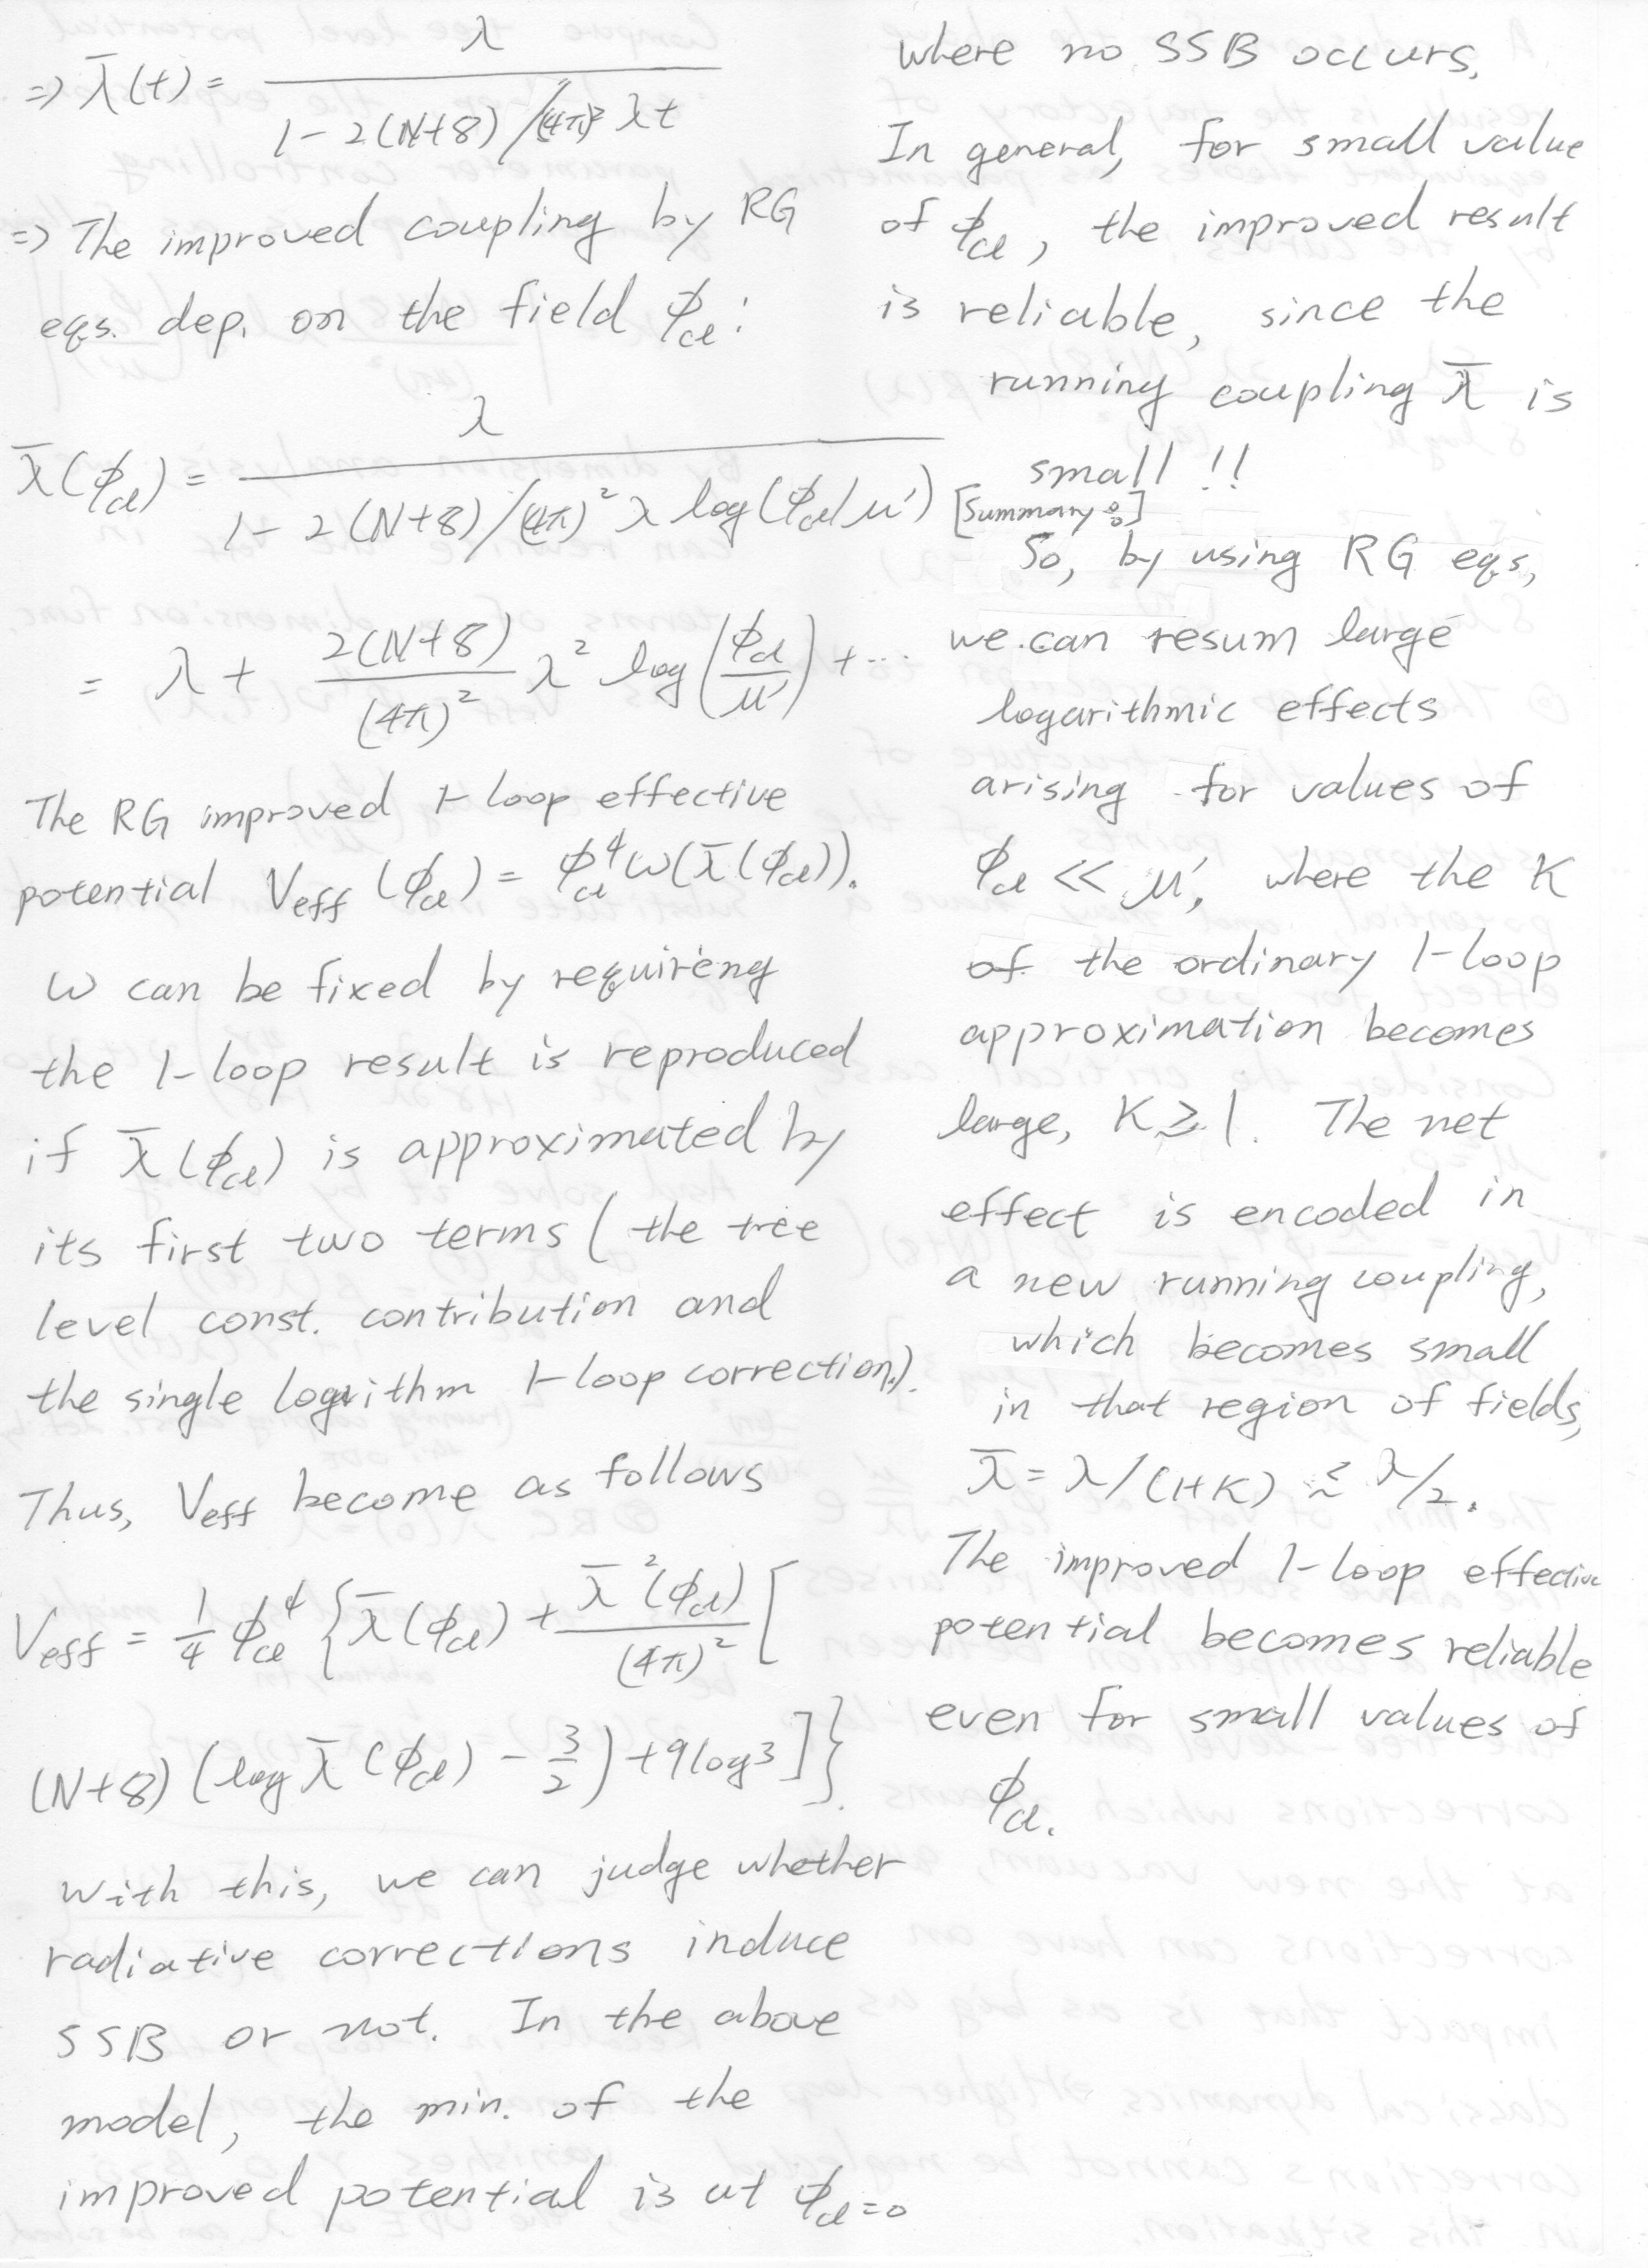 ⇒ λ̄(t) = λ / (1 - 2(N+8)/(4π)² λt)
⇒ The improved coupling by RG
eqs. dep. on the field ϕcl :
λ̄(ϕcl) = λ / (1 - 2(N+8)/(4π)² λ log(ϕcl/μ'))
= λ + 2(N+8)/(4π)² λ² log(ϕcl/μ') + ...
The RG improved 1-loop effective
potential Veff (ϕcl) = ϕcl⁴ ω(λ̄(ϕcl)).
ω can be fixed by requireng
the 1-loop result is reproduced
if λ̄(ϕcl) is approximated by
its first two terms (the tree
level const. contribution and
the single logrithm 1-loop correction.).
Thus, Veff become as follows
Veff = 1/4 ϕcl⁴ {λ̄(ϕcl) + λ̄²(ϕcl)/(4π)² [
(N+8) (log λ̄(ϕcl) - 3/2) + 9log3 ]}.
With this, we can judge whether
radiative corrections induce
SSB or not. In the above
model, the min. of the
improved potential is at ϕcl=0
where no SSB occurs.
In general, for small value
of ϕcl, the improved result
is reliable, since the
running coupling λ̄ is
small !!
[Summary:]
So, by using RG eqs,
we can resum large
logarithmic effects
arising for values of
ϕcl << μ', where the K
of the ordinary 1-loop
approximation becomes
large, K ≳ 1. The net
effect is encoded in
a new running coupling,
which becomes small
in that region of fields,
λ̄ = λ/(1+K) ≲ λ/2.
The improved 1-loop effective
potential becomes reliable
even for small values of
ϕcl.